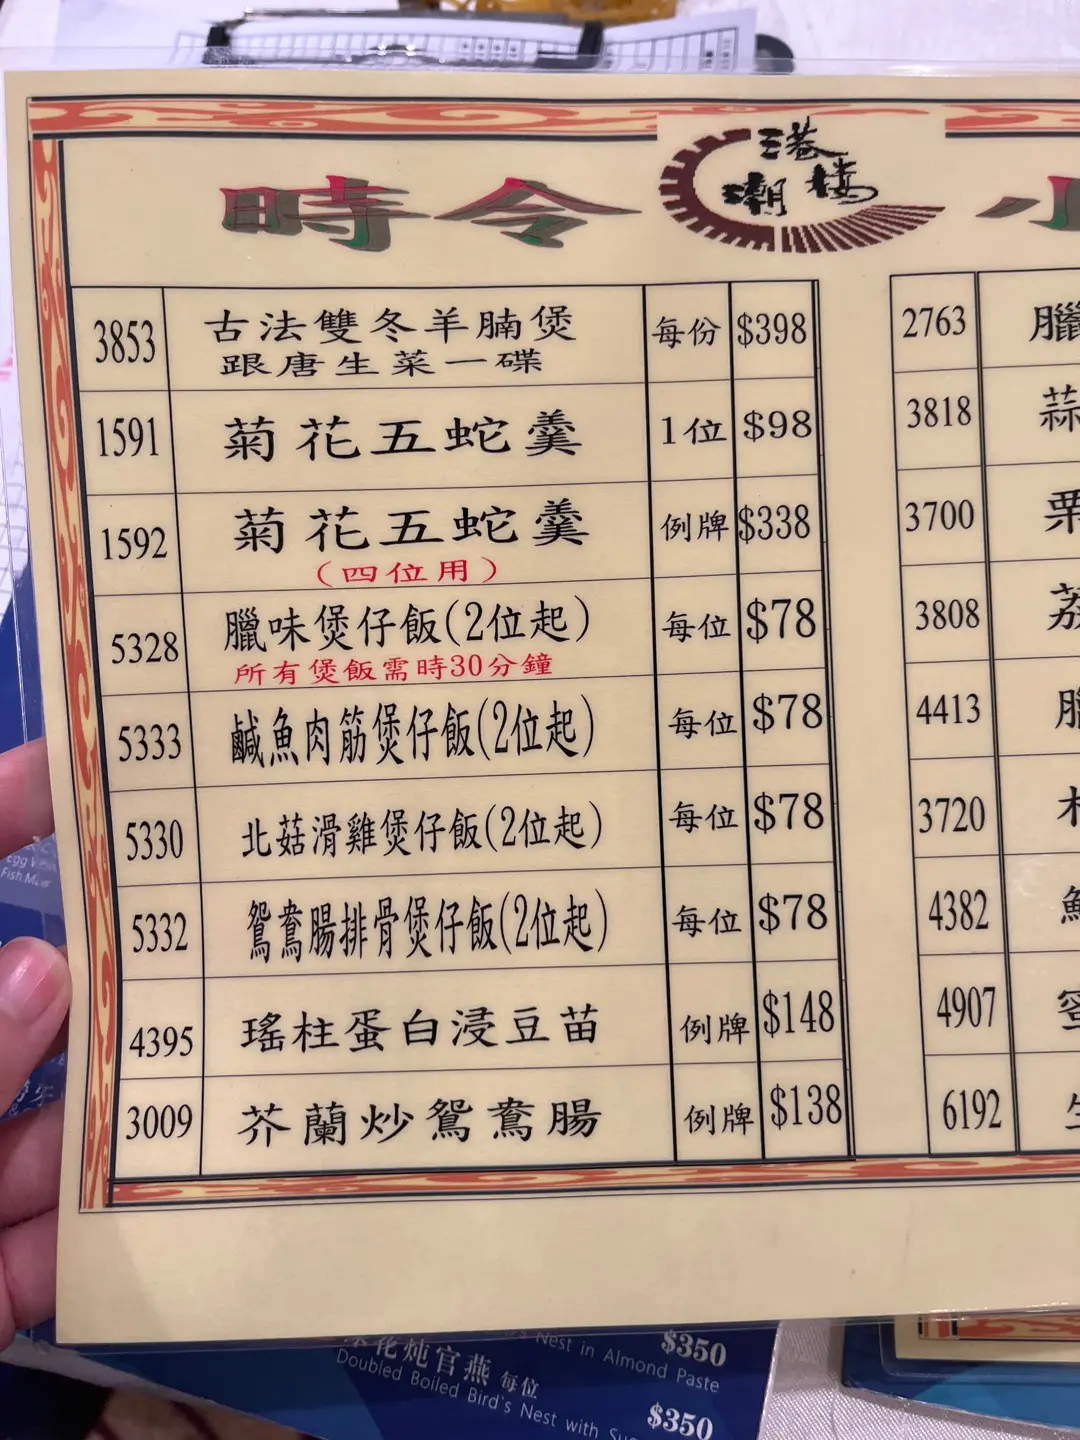 時令
港
潮樓
小
3853 古法雙冬羊腩煲 每份 $398
跟唐生菜一碟
1591 菊花五蛇羹 1位 $98
1592 菊花五蛇羹 例牌 $338
(四位用)
5328 臘味煲仔飯(2位起) 每位 $78
所有煲飯需時30分鐘
5333 鹹魚肉筋煲仔飯(2位起) 每位 $78
5330 北菇滑雞煲仔飯(2位起) 每位 $78
5332 鴛鴦腸排骨煲仔飯(2位起) 每位 $78
4395 瑤柱蛋白浸豆苗 例牌 $148
3009 芥蘭炒鴛鴦腸 例牌 $138
2763 臘
3818 蒜
3700 栗
3808 荔
4413
3720
4382
4907
6192
Nest in Almond Paste $350
花炖官燕 每位
Doubled Boiled Bird's Nest with $350